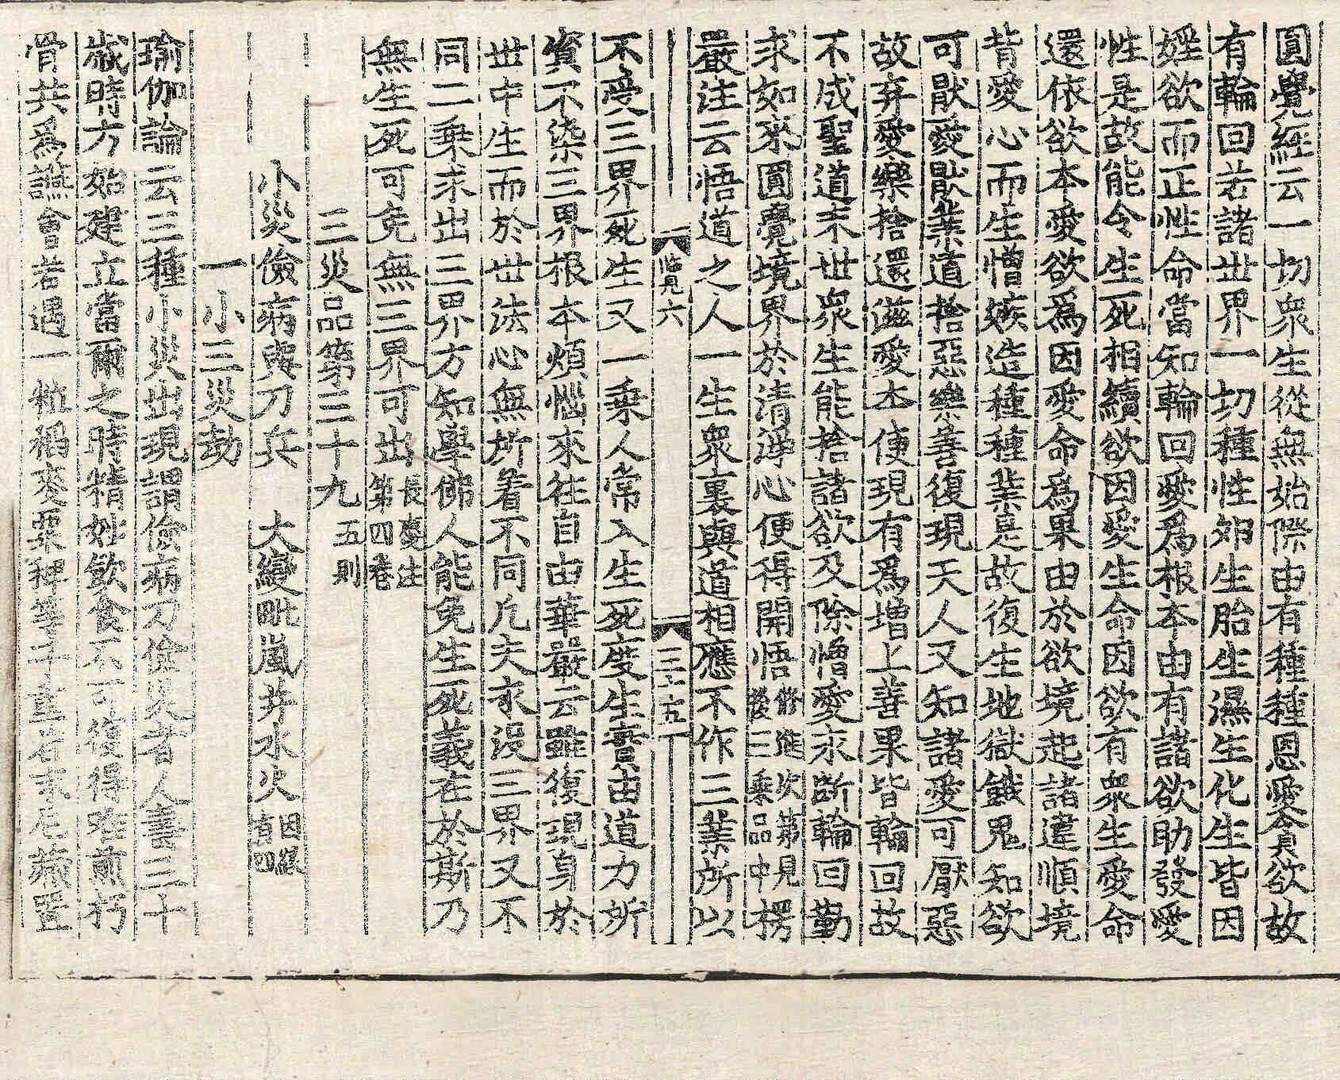 圓覺經云一切衆生從無始際由有種種恩愛貪欲故
有輪回若諸世界一切種性卵生胎生濕生化生皆因
婬欲而正性命當知輪回愛爲根本由有諸欲助發愛
性是故能令生死相續欲因愛生命因欲有衆生愛命
還依欲本愛欲爲因愛命爲果由於欲境起諸違順境
背愛心而生憎嫉造種種業是故復生地獄餓鬼知欲
可猒愛猒業道捨惡樂善復現天人又知諸愛可厭惡
故弃愛樂捨還滋愛本便現有爲增上善果皆輪回故
不成聖道禾世衆生能捨諸欲及除憎愛永斷輪回勤
求如來圓覺境界於清淨心便得開悟修進次第見後三乘品中楞
嚴注云悟道之人一生衆裏與道相應不作三業所以
臨見六 三十五
不受三界死生又一乘人常入生死度生實由道力所
資不染三界根本煩惱來往自由華嚴云雖復現身於
世中生而於世法心無所着不同凡夫永沒三界又不
同二乘求出三界方知學佛人能免生死義在於斯乃
無生死可免無三界可出長慶注第四卷
三災品第三十九五則
小災儉病與刀兵 大變毗嵐并水火因緣有四
一小三災劫
瑜伽論云三種小災出現謂儉病刀儉災者人壽三十
歲時方始建立當爾之時精妙飲食不可復得唯煎朽
骨共爲讌會若遇一粒稻麥粟稗等子重若末尼藏置